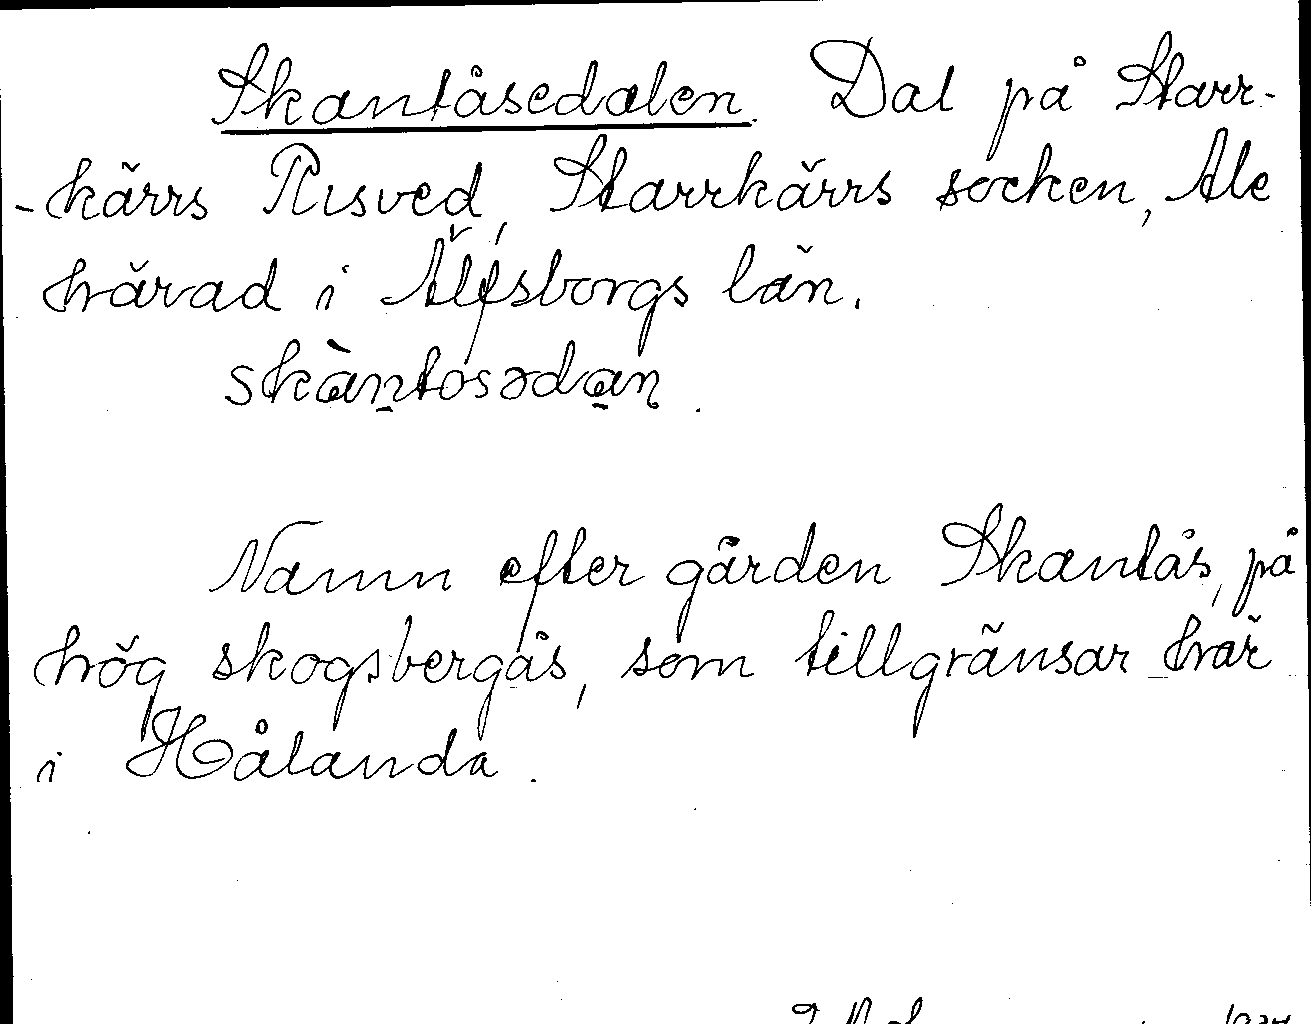 Skantåsedalen. Dal på Starr-
-kärrs Risved, Starrkärrs socken, Ale
härad i Älfsborgs län.
skàntosədan.
Namn efter gården Skantås, på
hög skogsbergås, som tillgränsar här
i Hålanda.